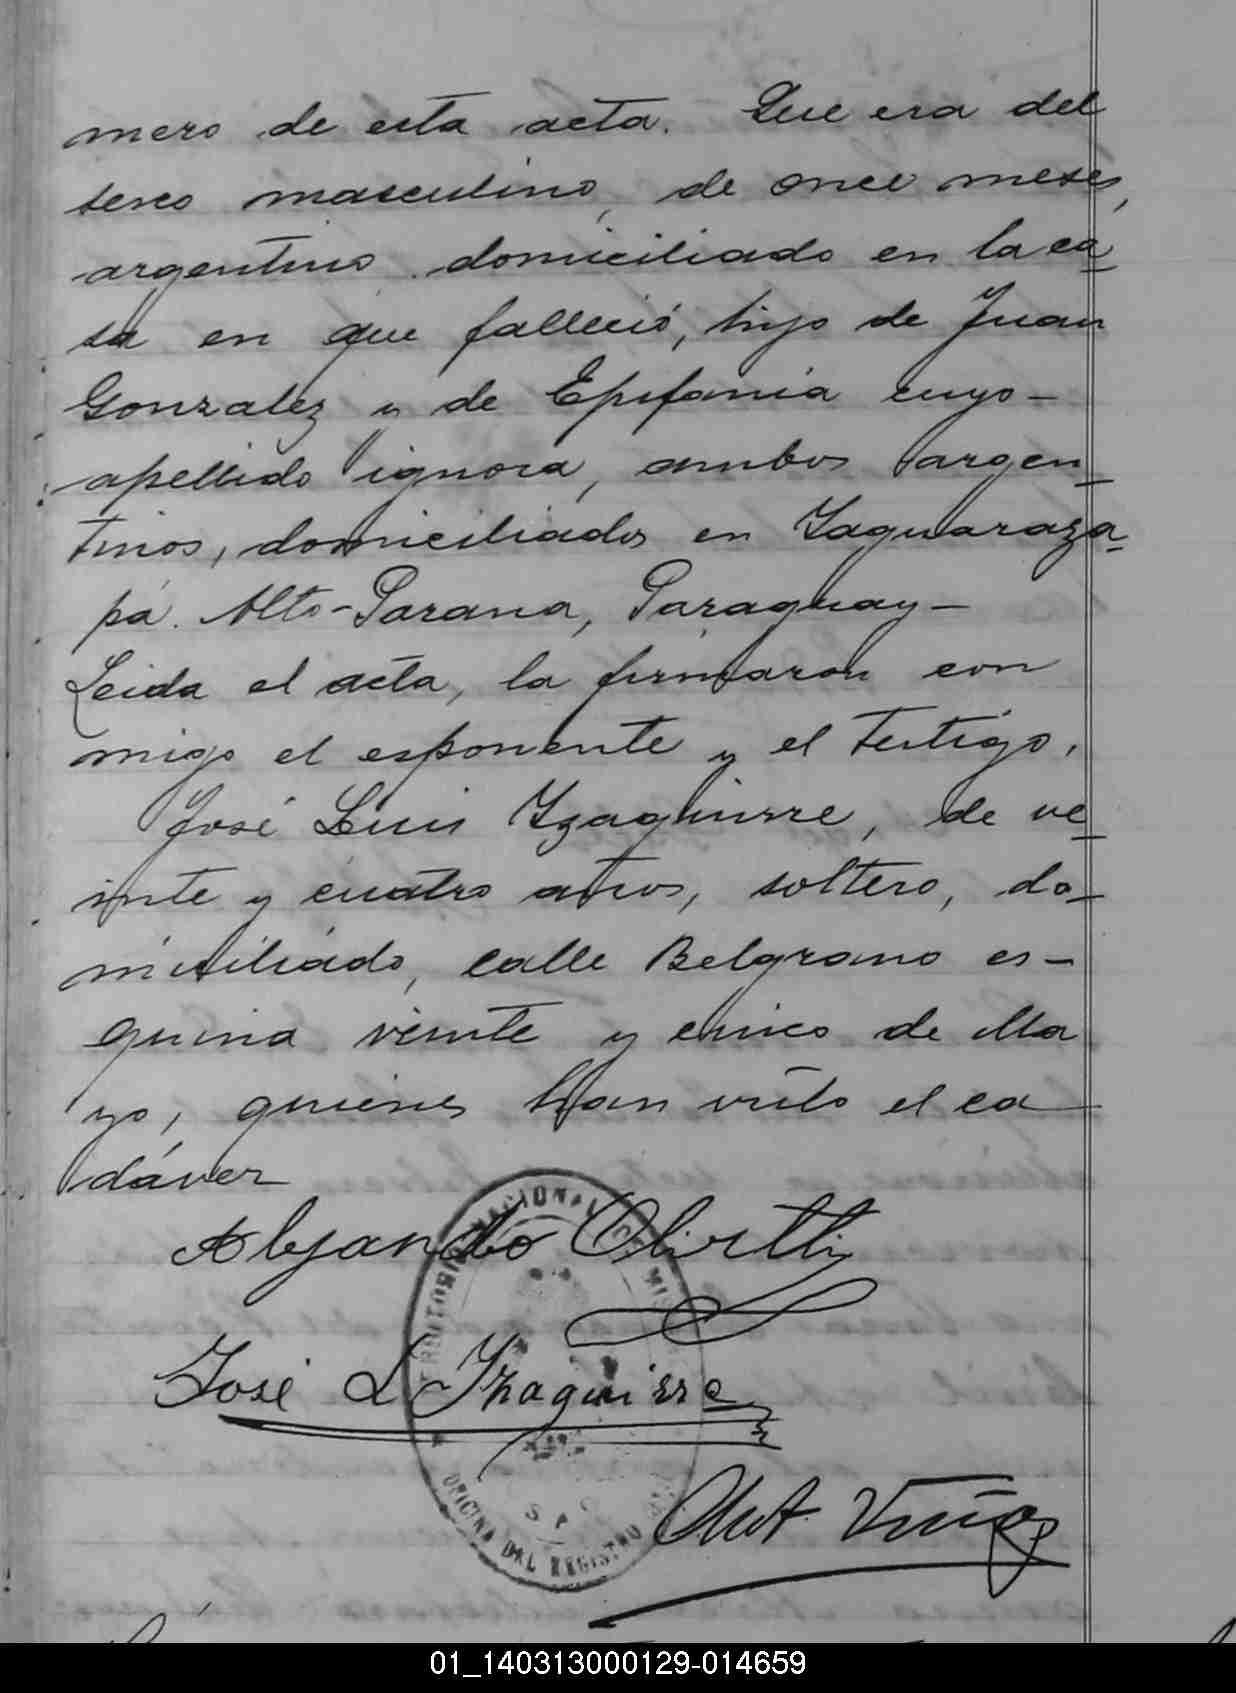 mero de esta acta. Que era del
sexo masculino, de once meses,
argentino, domiciliado en la ca-
sa en que falleció, hijo de Juan
Gonzalez y de Epifania cuyo-
apellido ignora, ambos argen-
tinos, domiciliados en Yaguaraza-
pá. Alto-Parana, Paraguay-
Leida el acta, la firmaron con
migo el esponente y el testigo,
José Luis Yzaguirre, de ve-
inte y cuatro años, soltero, do-
miciliado, calle Belgrano es-
quina veinte y cinco de Ma
yo, quienes han visto el ca
dáver
Alejandro
José L Yzaguirre
TERRITORIO NACIONAL DE MISIONES
OFICINA DEL REGISTRO
01_140313000129-014659